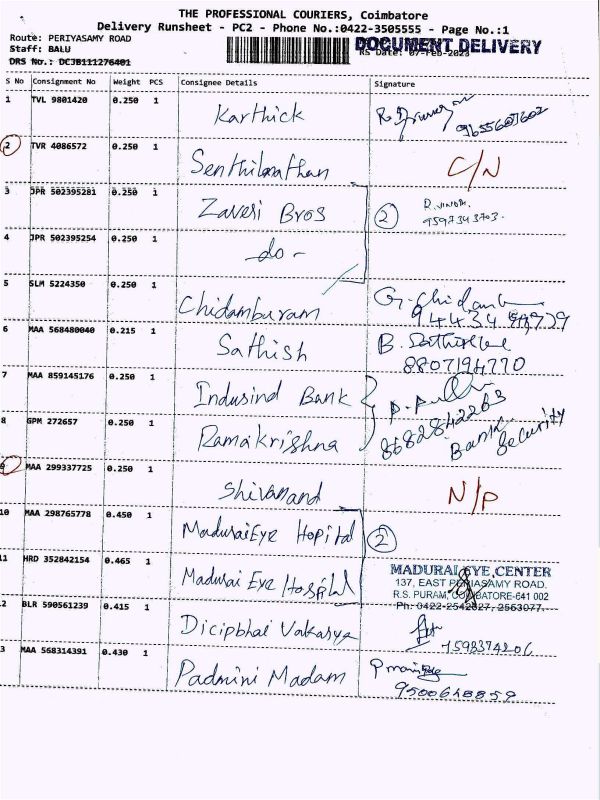 THE PROFESSIONAL COURIERS, Coimbatore
Delivery Runsheet - PC2 - Phone No.:0422-3505555 - Page No.:1
Route: PERIYASAMY ROAD
DOCUMENT DELIVERY
Staff: BALU
RS Date: 07-Feb-2023
DRS No.: DCJB111276401
S No Consignment No Weight PCS Consignee Details Signature
1 TVL 9801420 0.250 1 Karthick
9655607602
2 TVR 4086572 0.250 1 Senthilnathan C/N
3 JPR 502395281 0.250 1 Zaveri Bros 2 R. Vinoth.
9597343703.
4 JPR 502395254 0.250 1 -do-
5 SLM 5224350 0.250 1 Chidamburam G. Chidamb
94434
6 MAA 568480040 0.215 1 Sathish B.
8807194770
7 MAA 859145176 0.250 1 Indusind Bank
8682842263
8 GPM 272657 0.250 1 Ramakrishna Bank Security
9 MAA 299337725 0.250 1 Shivanand N/P
10 MAA 298765778 0.450 1 Madurai Eye Hopital 2
11 HRD 352842154 0.465 1 Madurai Eye Hospital
MADURAI EYE CENTER
137, EAST PERIASAMY ROAD,
R.S. PURAM, COIMBATORE-641 002
Ph: 0422-2542827, 2563077.
2 BLR 590561239 0.415 1 Dicipbhai Vakasya
7598374206
3 MAA 568314391 0.430 1 Padmini Madam
9500648859